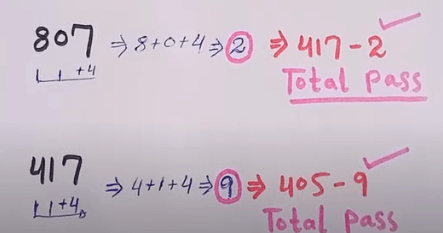 807 ⇒ 8+0+4 ⇒ 2 ⇒ 417-2 ✓
+4
Total Pass
417 ⇒ 4+1+4 ⇒ 9 ⇒ 405-9 ✓
+4
Total Pass